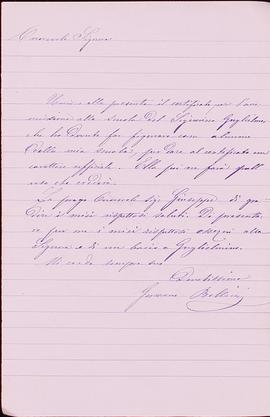 Onorevole Signora
Unisco alla presente il certificato per l'am
missione alla scuola del Signorino Guglielmo
che ho dovuto far figurare come alunno
della mia scuola, per dare al certificato un
carattere ufficiale. Ella poi ne farà quell'
uso che crederà.
La prego Onorevole Sig. Giuseppe di gra
dire i miei rispettosi saluti. Di presenta
re per me i miei rispettosi ossequi alla
Signora e di un bacio a Guglielmino.
Mi creda sempre suo
Devotissimo
Bollini